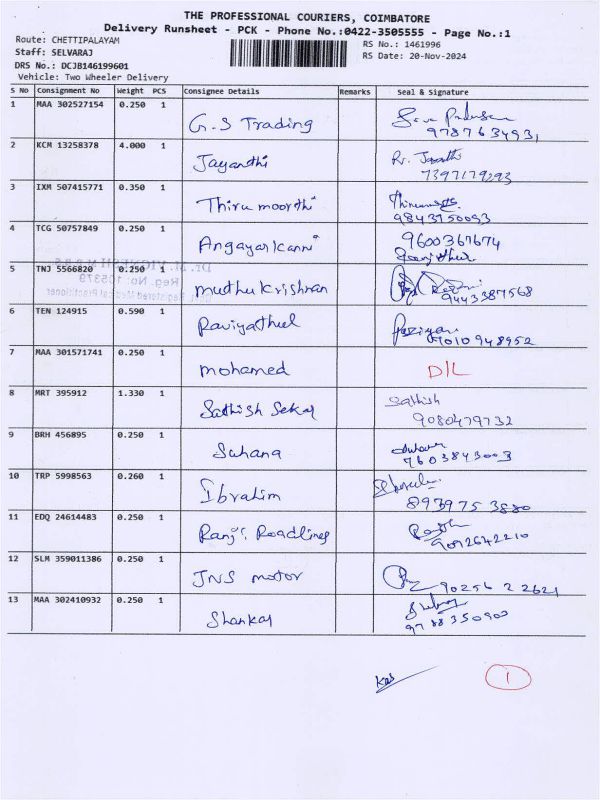 THE PROFESSIONAL COURIERS, COIMBATORE
Delivery Runsheet - PCK - Phone No.:0422-3505555 - Page No.:1
Route: CHETTIPALAYAM RS No.: 1461996
Staff: SELVARAJ RS Date: 20-Nov-2024
DRS No.: DCJB146199601
Vehicle: Two Wheeler Delivery
S No Consignment No Weight PCS Consignee Details Remarks Seal & Signature
1 MAA 302527154 0.250 1 G.S Trading
9787634931
2 KCM 13258378 4.000 1 Jayanthi
7397179293
3 IXM 507415771 0.350 1 Thirumoorthi
9843750093
4 TCG 50757849 0.250 1 Angayarkanni 9600367674
5 TNJ 5566820 0.250 1 muthukrishnan
9443387568
Reg. No: 105379
Registered Medical Practitioner
6 TEN 124915 0.590 1 Raviyathul
9010948952
7 MAA 301571741 0.250 1 mohamed D/L
8 MRT 395912 1.330 1 Sathish Sekar Sathish
9080479732
9 BRH 456895 0.250 1 Sahana
7603843003
10 TRP 5998563 0.260 1 Ibrahim
8939753880
11 EDQ 24614483 0.250 1 Roadlines
9092642210
12 SLM 359011386 0.250 1 JNS motor 90256 22621
13 MAA 302410932 0.250 1 Shankar
9788350900
1